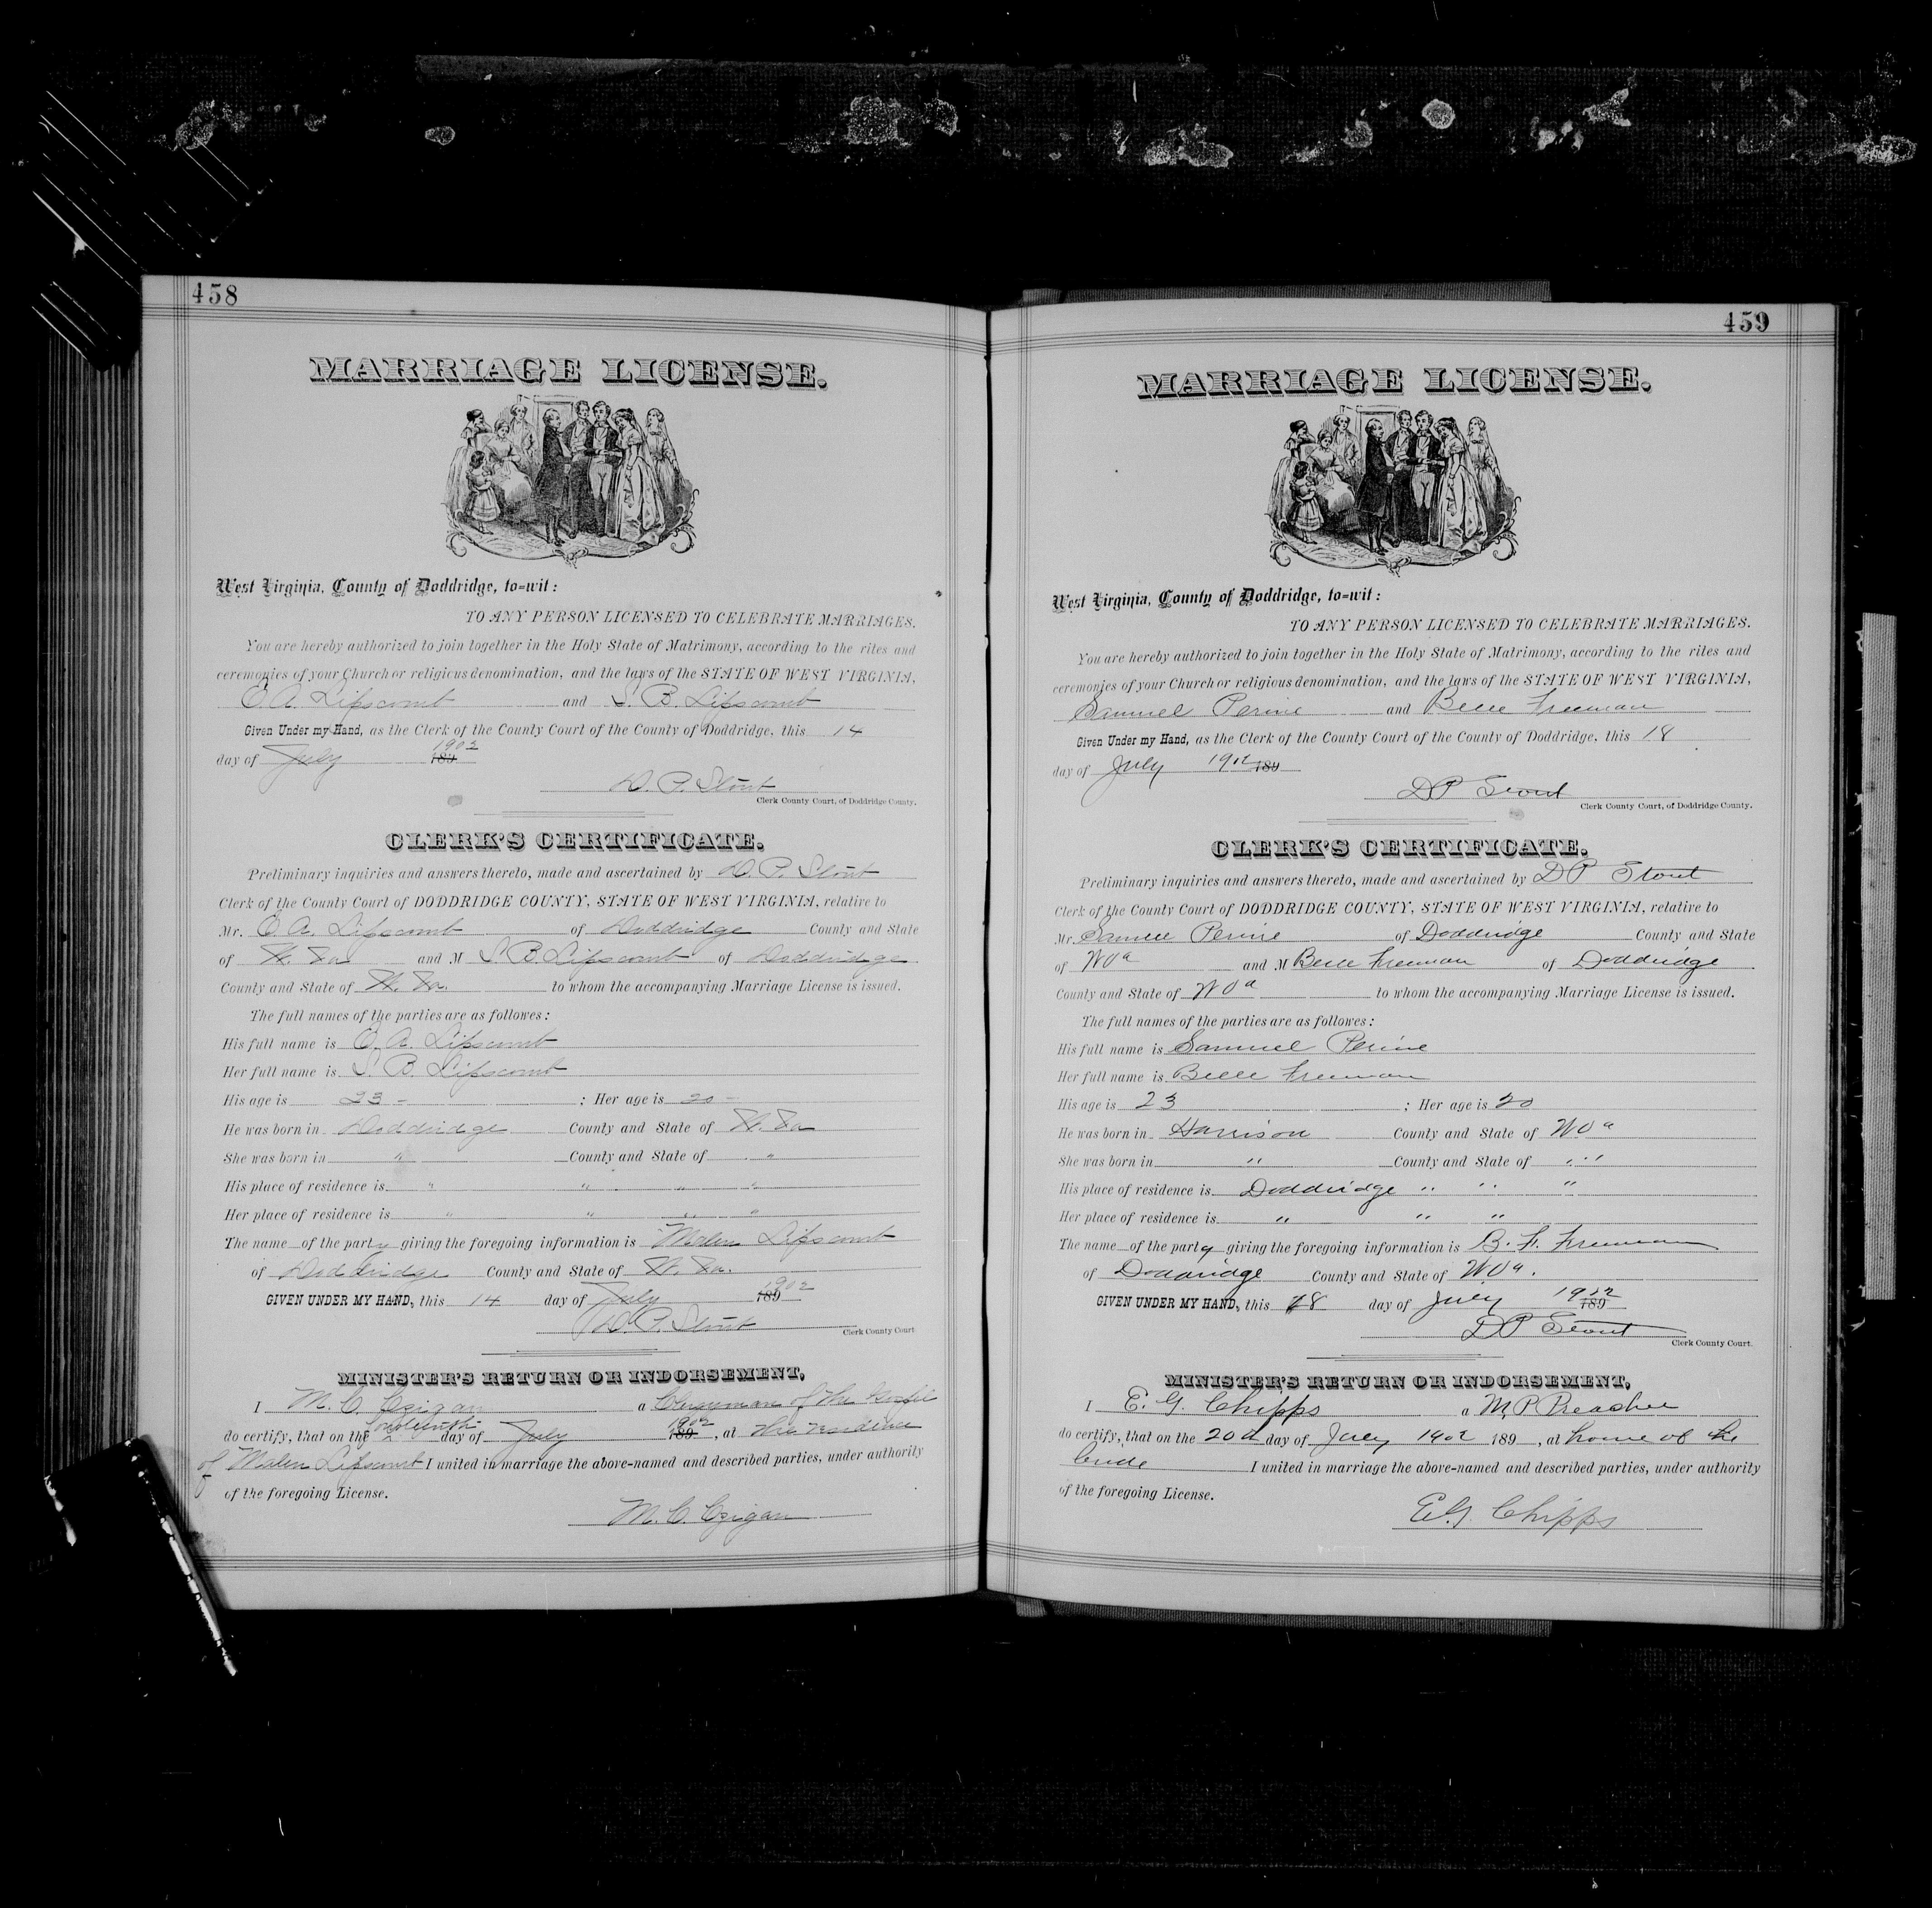 458
MARRIAGE LICENSE.
West Virginia, County of Doddridge, to=wit:
TO ANY PERSON LICENSED TO CELEBRATE MARRIAGES.
You are hereby authorized to join together in the Holy State of Matrimony, according to the rites and
ceremonies of your Church or religious denomination, and the laws of the STATE OF WEST VIRGINIA,
O. A. Lipscomb and S. B. Lipscomb
Given Under my Hand, as the Clerk of the County Court of the County of Doddridge, this 14
day of July 1902 189
D. P. Stout
Clerk County Court, of Doddridge County.
CLERK'S CERTIFICATE.
Preliminary inquiries and answers thereto, made and ascertained by D. P. Stout
Clerk of the County Court of DODDRIDGE COUNTY, STATE OF WEST VIRGINIA, relative to
Mr. O. A. Lipscomb of Doddridge County and State
of W. Va and M S. B. Lipscomb of Doddridge
County and State of W. Va. to whom the accompanying Marriage License is issued.
The full names of the parties are as followes:
His full name is O. A. Lipscomb
Her full name is S. B. Lipscomb
His age is 23 - ; Her age is 20 -
He was born in Doddridge County and State of W. Va
She was born in " County and State of "
His place of residence is " " " "
Her place of residence is " " " "
The name of the party giving the foregoing information is Lipscomb
of Doddridge County and State of W. Va.
GIVEN UNDER MY HAND, this 14 day of July 1902 189
D. P. Stout
Clerk County Court
MINISTER'S RETURN OR INDORSEMENT,
I M. C. a Clergyman of the Gospel
do certify, that on the day of July 1902 189 , at the residence
of Lipscomb I united in marriage the above-named and described parties, under authority
of the foregoing License.
M. C.
459
MARRIAGE LICENSE.
West Virginia, County of Doddridge, to=wit:
TO ANY PERSON LICENSED TO CELEBRATE MARRIAGES.
You are hereby authorized to join together in the Holy State of Matrimony, according to the rites and
ceremonies of your Church or religious denomination, and the laws of the STATE OF WEST VIRGINIA,
Samuel Perine and Belle Freeman
Given Under my Hand, as the Clerk of the County Court of the County of Doddridge, this 18
day of July 1902 189
D P Stout
Clerk County Court, of Doddridge County.
CLERK'S CERTIFICATE.
Preliminary inquiries and answers thereto, made and ascertained by D P Stout
Clerk of the County Court of DODDRIDGE COUNTY, STATE OF WEST VIRGINIA, relative to
Mr. Samuel Perine of Doddridge County and State
of W Va and M Belle Freeman of Doddridge
County and State of W Va to whom the accompanying Marriage License is issued.
The full names of the parties are as followes:
His full name is Samuel Perine
Her full name is Belle Freeman
His age is 23 ; Her age is 20
He was born in Harrison County and State of W Va
She was born in " County and State of " "
His place of residence is Doddridge " " "
Her place of residence is " " "
The name of the party giving the foregoing information is B. F. Freeman
of Doddridge County and State of W Va.
GIVEN UNDER MY HAND, this 18 day of July 1902 189
D P Stout
Clerk County Court.
MINISTER'S RETURN OR INDORSEMENT,
I E. G. Chipps a M. P. Preacher
do certify, that on the 20 day of July 1902 189 , at home of the
bride I united in marriage the above-named and described parties, under authority
of the foregoing License.
E. G. Chipps